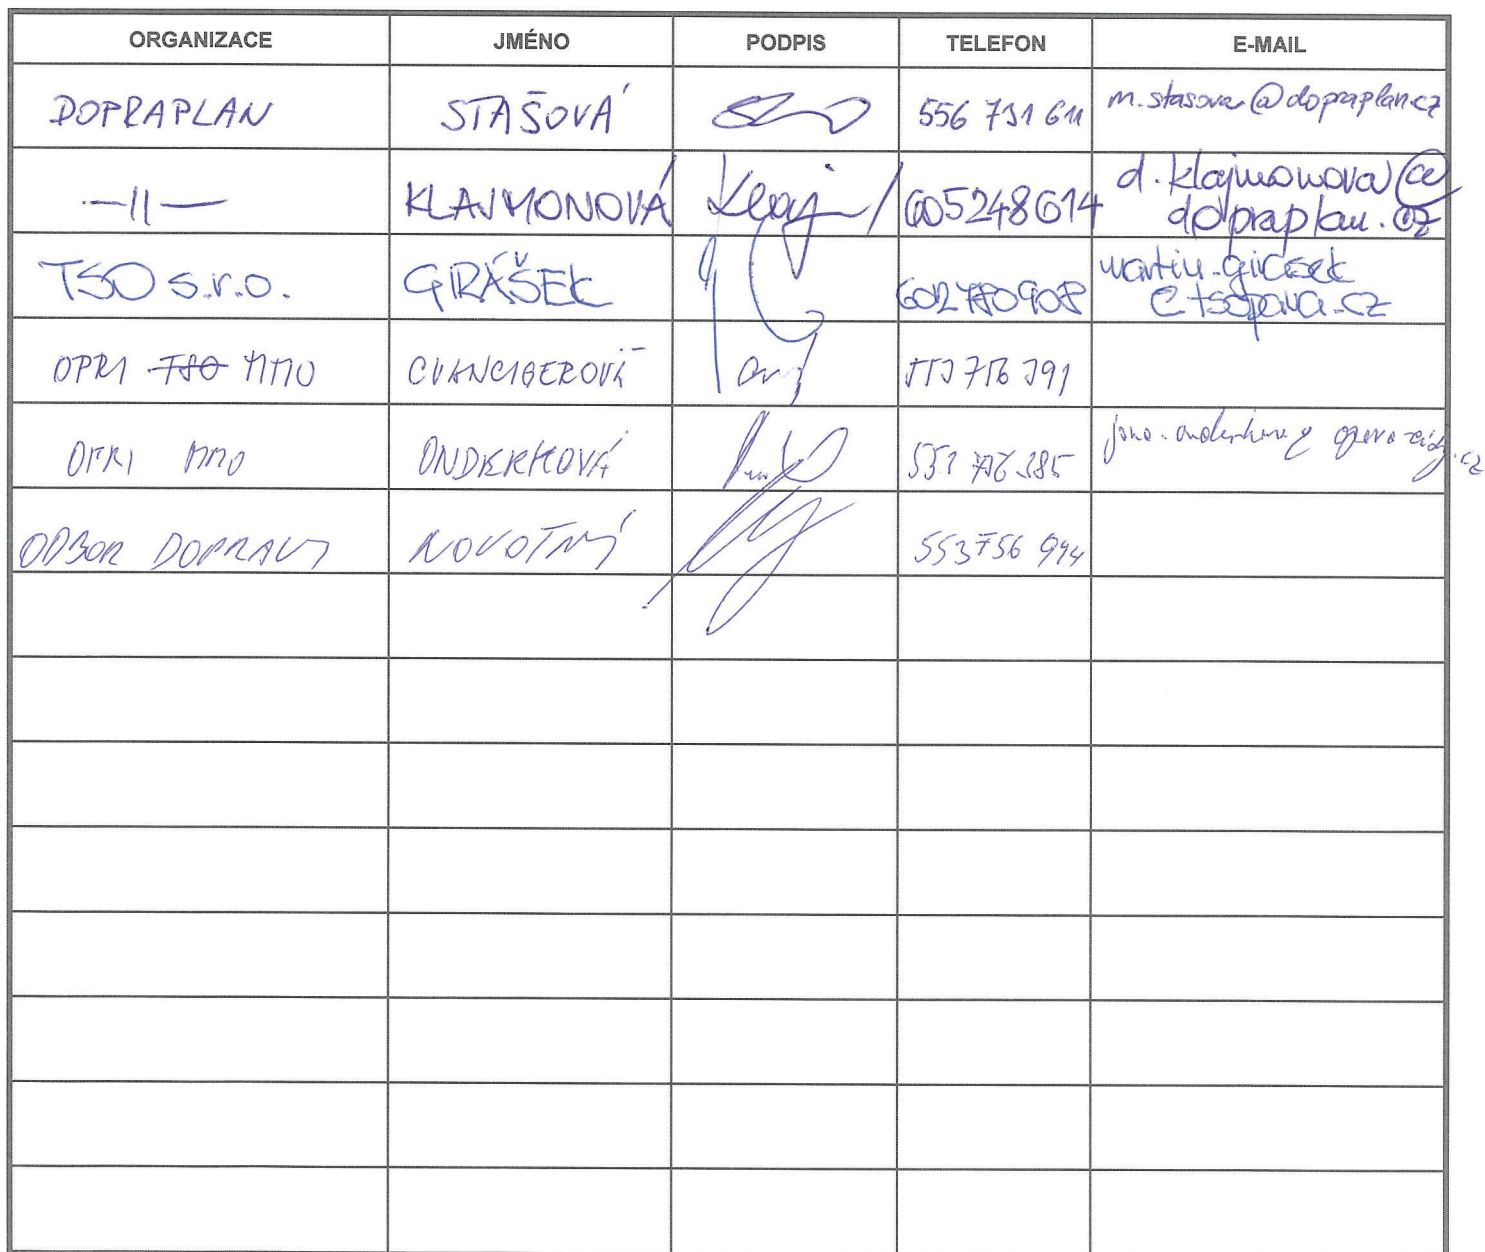 ORGANIZACE JMÉNO PODPIS TELEFON E-MAIL
DOPRAPLAN STAŠOVÁ 556 731 611 m.stasova@dopraplan.cz
—||— KLAJMONOVÁ 605248614 d.klajmonova@
dopraplan.cz
TSO s.r.o. GIRÁŠEK martin.girasek
@tsopava.cz
OPRI TSO MMO CVANCIGEROVÁ
OPRI MMO ONDERKOVÁ
ODBOR DOPRAVY NOVOTNÝ 553756 944